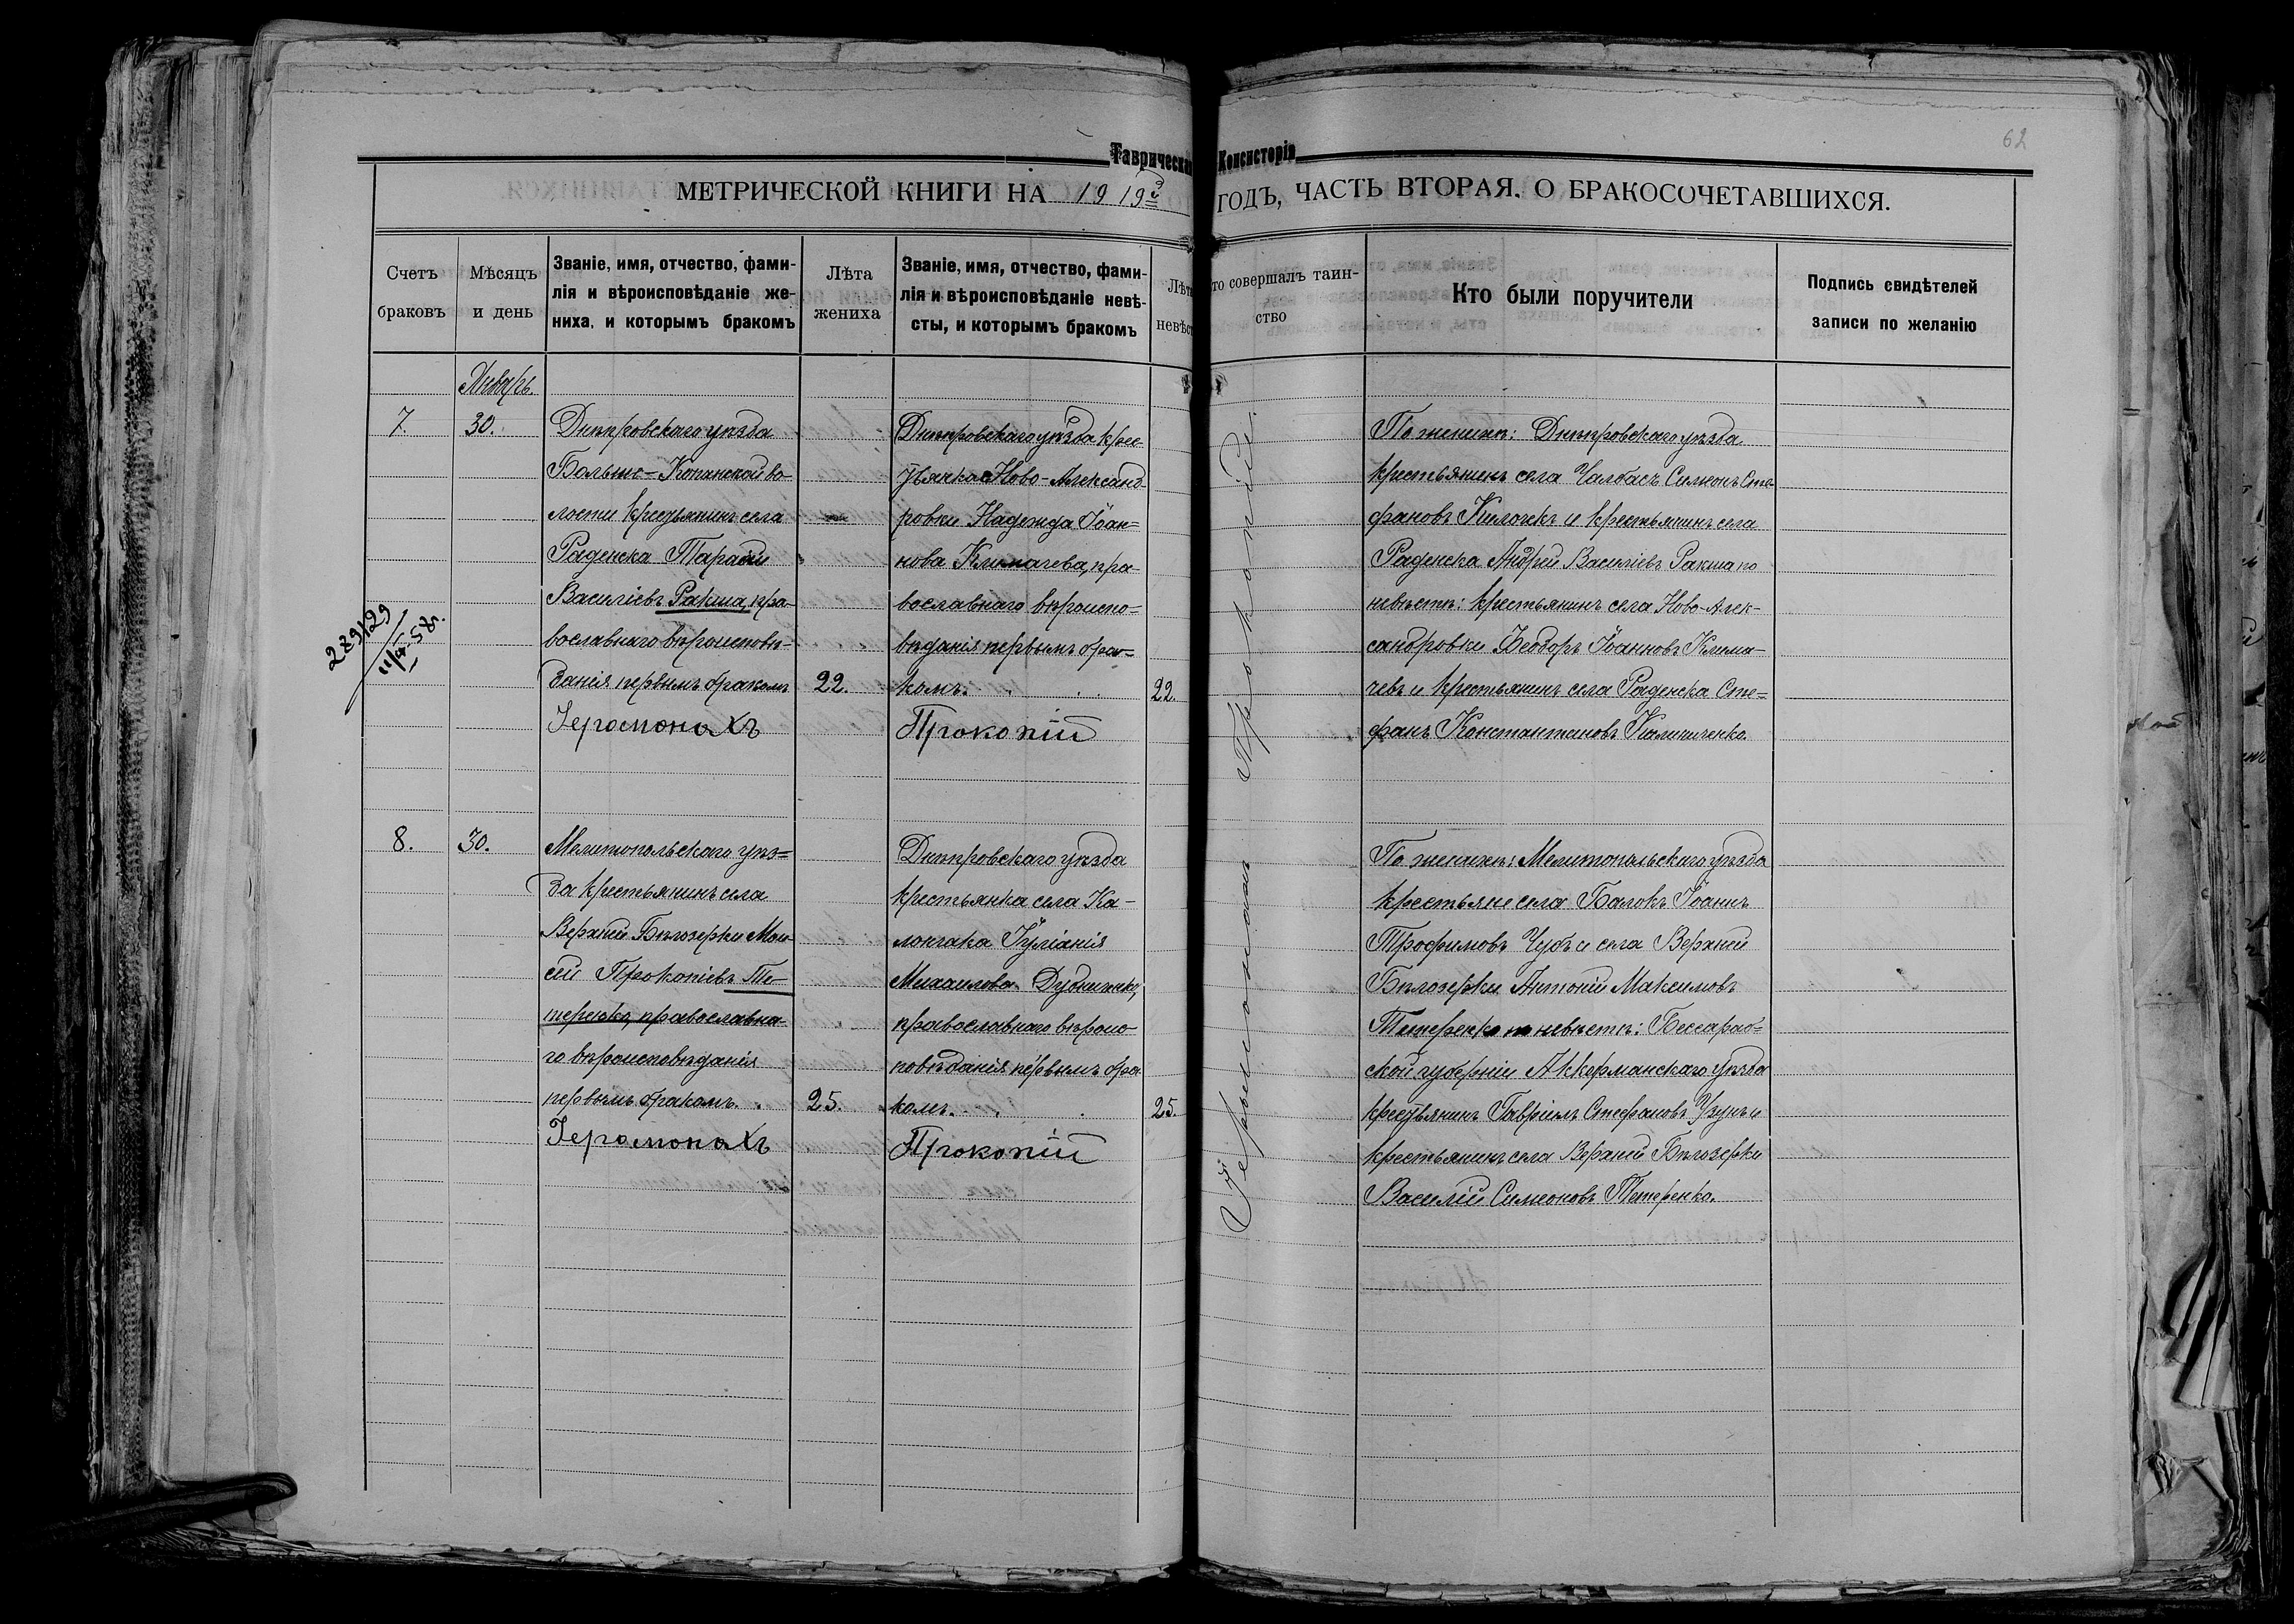 62
Таврическая Консисторія
МЕТРИЧЕСКОЙ КНИГИ НА 1919й ГОДЪ, ЧАСТЬ ВТОРАЯ. О БРАКОСОЧЕТАВШИХСЯ.
Счетъ браковъ
Мѣсяцъ и день
Званіе, имя, отчество, фами-
лія и вѣроисповѣданіе же-
ниха, и которымъ бракомъ
Лѣта жениха
Званіе, имя, отчество, фами-
лія и вѣроисповѣданіе невѣ-
сты, и которымъ бракомъ
Лѣта
невѣс
то совершалъ таин-
ство
Кто были поручители
Подпись свидѣтелей
записи по желанію
Январь.
7.
30.
Днѣпровскаго уѣзда
Больше-Копанской во-
лости крестьянинъ села
Раденска Тарасій
Василіевъ Ракша, пра-
вославнаго вѣроисповѣ-
данія первымъ бракомъ
22.
Іеромонахъ
Днѣпровскаго уѣзда крес-
тьянка Ново-Александ-
ровки Надежда Іоан-
нова Климачева, пра-
вославнаго вѣроиспо-
вѣданія первымъ бра-
комъ.
22.
Прокопій
Іеромонахъ Прокопій.
По женихѣ: Днѣпровскаго уѣзда
крестьянинъ села Чалбасъ Симеонъ Сте-
фановъ и крестьянинъ села
Раденска Андрей Василіевъ Ракша по
невѣстѣ: крестьянинъ села Ново-Алек-
сандровки Ѳеодоръ Іоанновъ Клима-
чевъ и крестьянинъ села Раденска Сте-
фанъ Константиновъ Калиниченко.
289129
11/4-58г.
8.
30.
Мелитопольскаго уѣз-
да крестьянинъ села
Верхней Бѣлозерки Мои-
сей Прокопіевъ Те-
теренко, православна-
го вѣроисповѣданія
первымъ бракомъ.
25.
Іеромонахъ
Днѣпровскаго уѣзда
крестьянка села Ка-
ланчака Іуліанія
Михаилова Дудниченко,
православнаго вѣроис-
повѣданія первымъ бра
комъ.
25.
Прокопій
По женихѣ: Мелитопольскаго уѣзда
крестьяне села Балокъ Іоаннъ
Трофимовъ Чубъ и села Верхней
Бѣлозерки Антоній Максимовъ
Тетеренко по невѣстѣ: Бессараб-
ской губерніи Аккерманскаго уѣзда
крестьянинъ Гавріилъ Стефановъ Узунъ и
крестьянинъ села Верхней Бѣлозерки
Василій Симеоновъ Тетеренко.